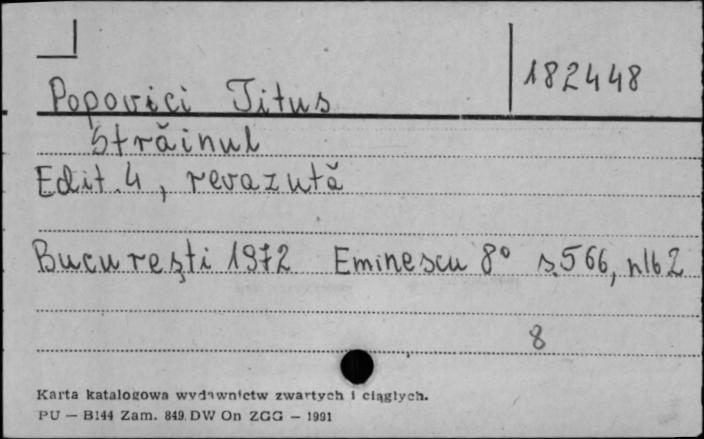 182448
Popovici Titus
Străinul
Edit. 4, revazută
Bucureşti 1972 Eminescu 8° s. 566, nlb 2
8
Karta katalogowa wydawnictw zwartych i ciągłych.
PU — B144 Zam. 849. DW On ZGG — 1991